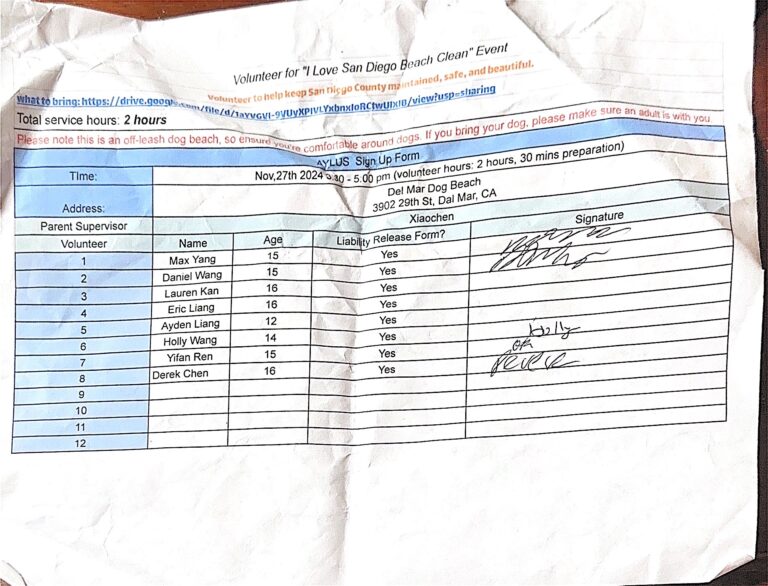 Volunteer for "I Love San Diego Beach Clean" Event
Volunteer to help keep San Diego County maintained, safe, and beautiful.
what to bring: https://drive.google.com/file/d/ /view?usp=sharing
Total service hours: 2 hours
Please note this is an off-leash dog beach, so ensure you're comfortable around dogs. If you bring your dog, please make sure an adult is with you.
AYLUS Sign Up Form
Time: Nov,27th 2024 - 5:00 pm (volunteer hours: 2 hours, 30 mins preparation)
Del Mar Dog Beach
Address: 3902 29th St, Dal Mar, CA
Parent Supervisor Xiaochen
Volunteer Name Age Liability Release Form? Signature
1 Max Yang 15 Yes
2 Daniel Wang 15 Yes
3 Lauren Kan 16 Yes
4 Eric Liang 16 Yes
5 Ayden Liang 12 Yes
6 Holly Wang 14 Yes Holly
7 Yifan Ren 15 Yes
8 Derek Chen 16 Yes
9
10
11
12